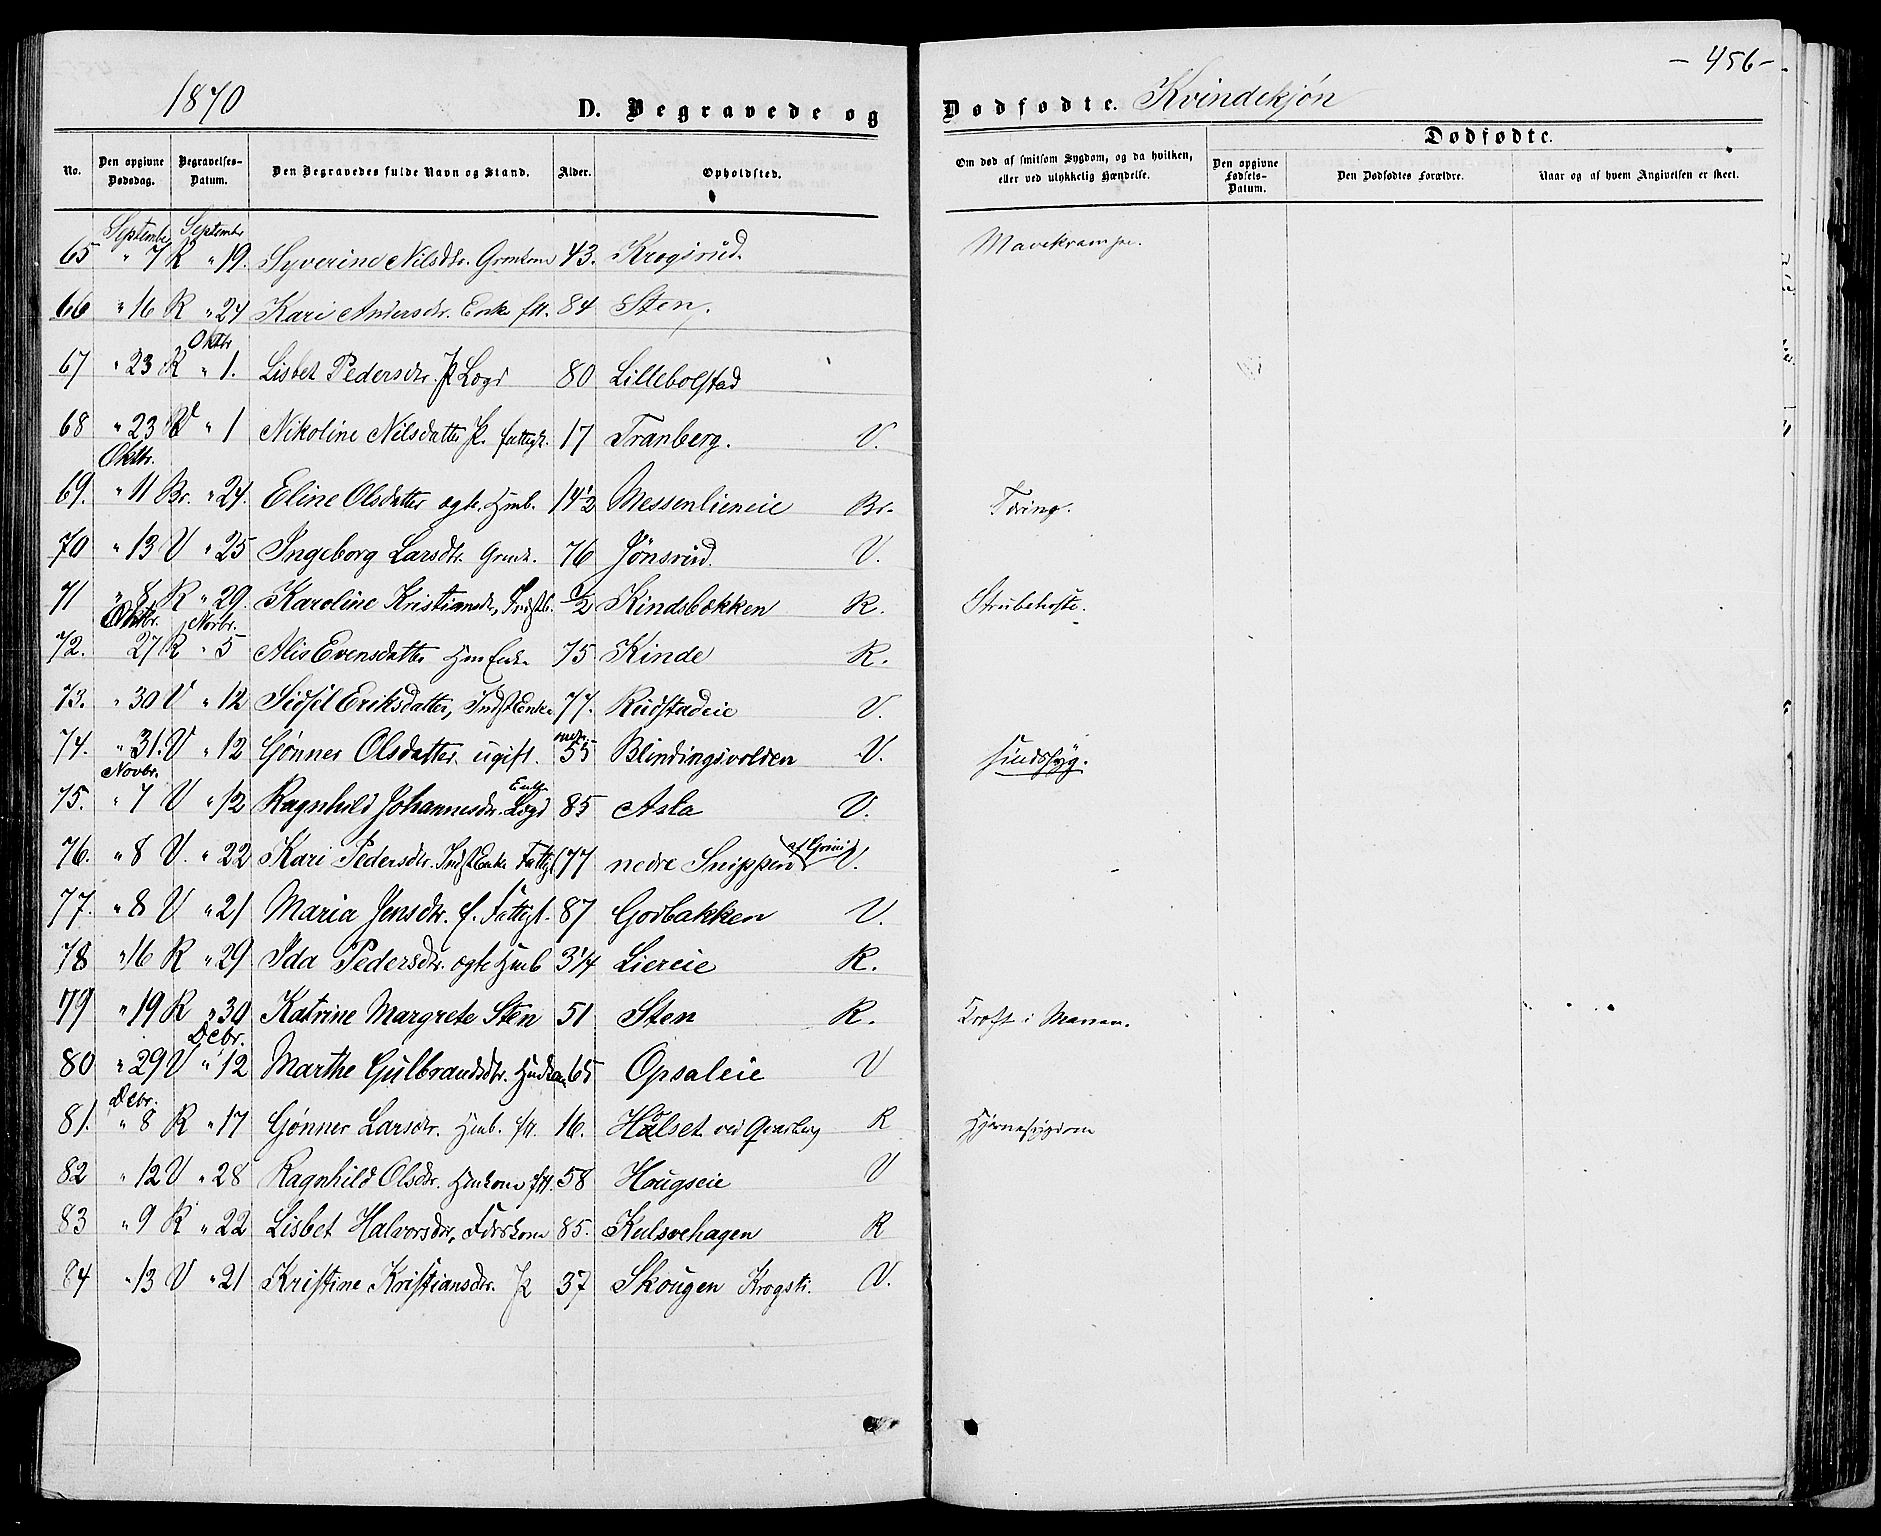 1870 D. Begravede og Dødfødte. Kvindekjøn - 456 -
No. Den opgivne Dødsdag. Begravelses-Datum. Den Begravedes fulde Navn og Stand. Alder. Opholdsted. Om død af smitsom Sygdom, og da hvilken, eller ved ulykkelig Hændelse. Dødfødte. Den opgivne Fødsels-Datum. Den Dødfødtes Forældre. Naar og af hvem Angivelsen er skeet.
September September
65 " 7 R " 19. Syverine Nilsdtr. Grmkone 43. Krogsrud. Mavekrampe.
66 " 16 R " 24 Kari Andersdr. Enke ftt. 84 Sten.
Oktbr
67 " 23 R " 1. Lisbet Pedersdtr. Pk Logd 80 Lillebolstad
68 " 23 V " 1 Nikoline Nilsdatter Pk. fattigk. 17 Tranberg. V.
Oktbr.
69. " 11 Br. " 24. Eline Olsdatter ægte. Hmb. 14 1/2 Messenlieneie Br. Tæring.
70 " 13 V " 25 Ingeborg Larsdtr. Grmk. 76 Jønsrud. V.
71 " 8 R " 29. Karoline Kristiansdr, Indstb. 1/2 Kindsbækken R. Strubehoste.
Oktbr. Novbr.
72. 27 R " 5 Alis Evensdatter Hm Enke 75 Kinde R.
73. " 30 V " 12 Sidsel Eriksdatter, IndstEnke 77. Rudstadeie V.
74. " 31. V " 12 Gønner Olsdatter ugift. omtr. 55 Blindingsvolden V. Sindssyg.
Novbr. Enke
75. " 7 V " 12 Ragnhild Johannesdr. Logd 85 Asla V.
76. " 8 V. " 22 Kari Pedersdtr. IndstEnke Fattigl 77 nedre Snippen V.
77. " 8 V " 21 Maria Jensdtr. f. Fattigl. 87 Gorbakken V.
78 " 16 R " 29 Ida Pedersdtr. ægte Hmb 3 1/4 Liereie R.
79 " 19 R " 30 Katrine Margrete Sten 51 Sten R. Kræft i Maven.
Debr.
80 " 29 V " 12 Marthe Gulbrandsdtr. 65 Opsaleie V
Debr.
81. " 8 R " 17 Gønner Larsdtr. Hmb. ftt. 16. Holset ved R Hjernesygdom
82 " 12 V " 28 Ragnhild Olsdr. Hmkone ftt. 58 Hougseie V
83 " 9 R " 22 Lisbet Halvorsdtr, 85. Kulsvehagen R
84 " 13 V " 21 Kristine Kristiansdtr. Pk 37 Skougen Krogst. V.